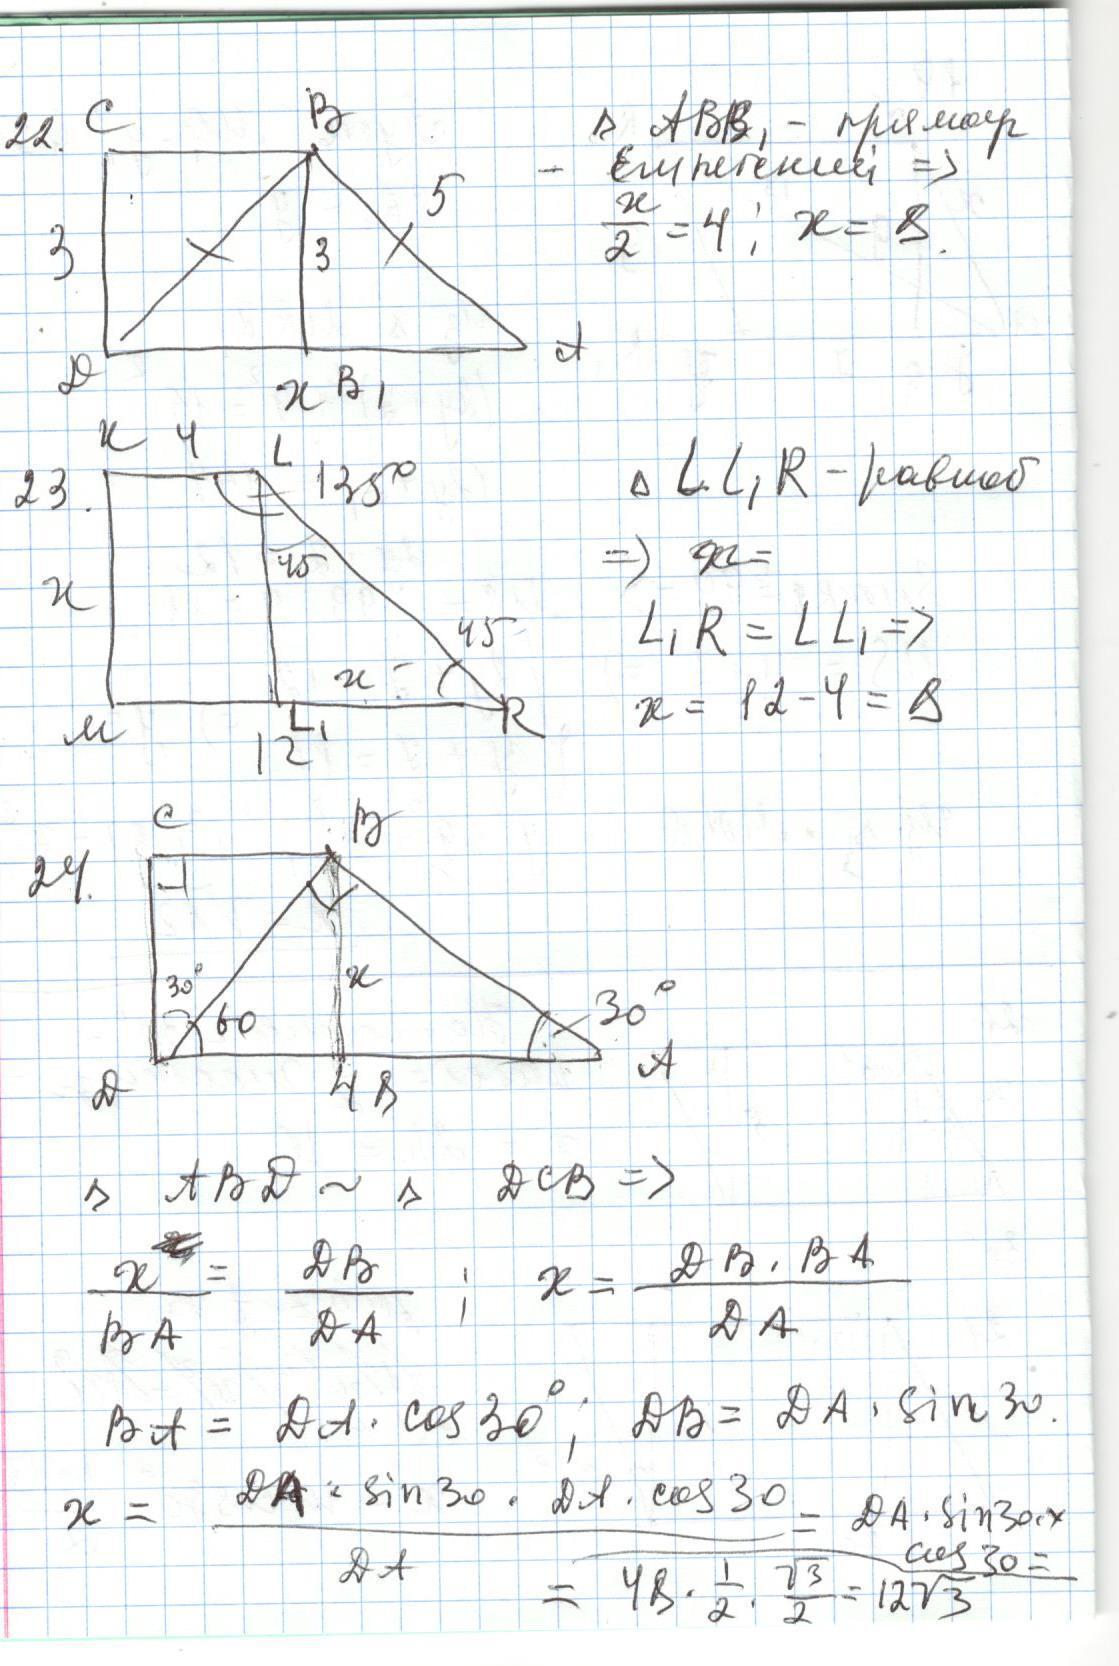 22.
C B
3 3 5
D x B₁ A
△ ABB₁ - прямоуг
- Египетский =>
x/2 = 4 ; x = 8.
23.
K 4 L 135°
x 45 45
x
M L₁ R
12
△ LL₁R - равноб
=> x =
L₁R = LL₁ =>
x = 12 - 4 = 8
24.
C B
30° 60 x 30°
D 48 A
△ ABD ~ △ DCB =>
x/BA = DB/DA ; x = DB · BA / DA
BA = DA · cos30° ; DB = DA · sin30.
x = DA · sin30 · DA · cos30 / DA = DA · sin30 ×
cos30 =
= 48 · 1/2 · √3/2 = 12√3